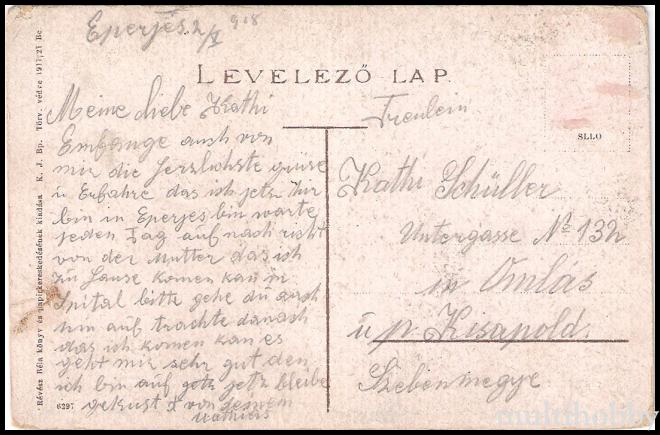 Eperjes 2/X 918
LEVELEZŐ LAP.
Meine liebe Kathi
Emfange auch von
mir die herzlichste grüse
u Erfahre das ich jetz hir
bin in Eperjes bin warte
jeden Tag auf nachricht
von der Mutter das ich
zu Hause komen kan im
Spital bitte gehe du auch
hin auf trachte danach
das ich komen kan es
geht mir sehr gut den
ich bin auf jetz bleibe
gekust von deinem
Mathias
Freulein
Kathi Schüller
Untergasse № 132
in Omlás
u p. Kisapold.
Szebenmegye
SLLO
Révész Béla könyv és papirkereskedésének kiadása K. J. Bp. Törv. védve 1917/21 Be
6297
multihobby